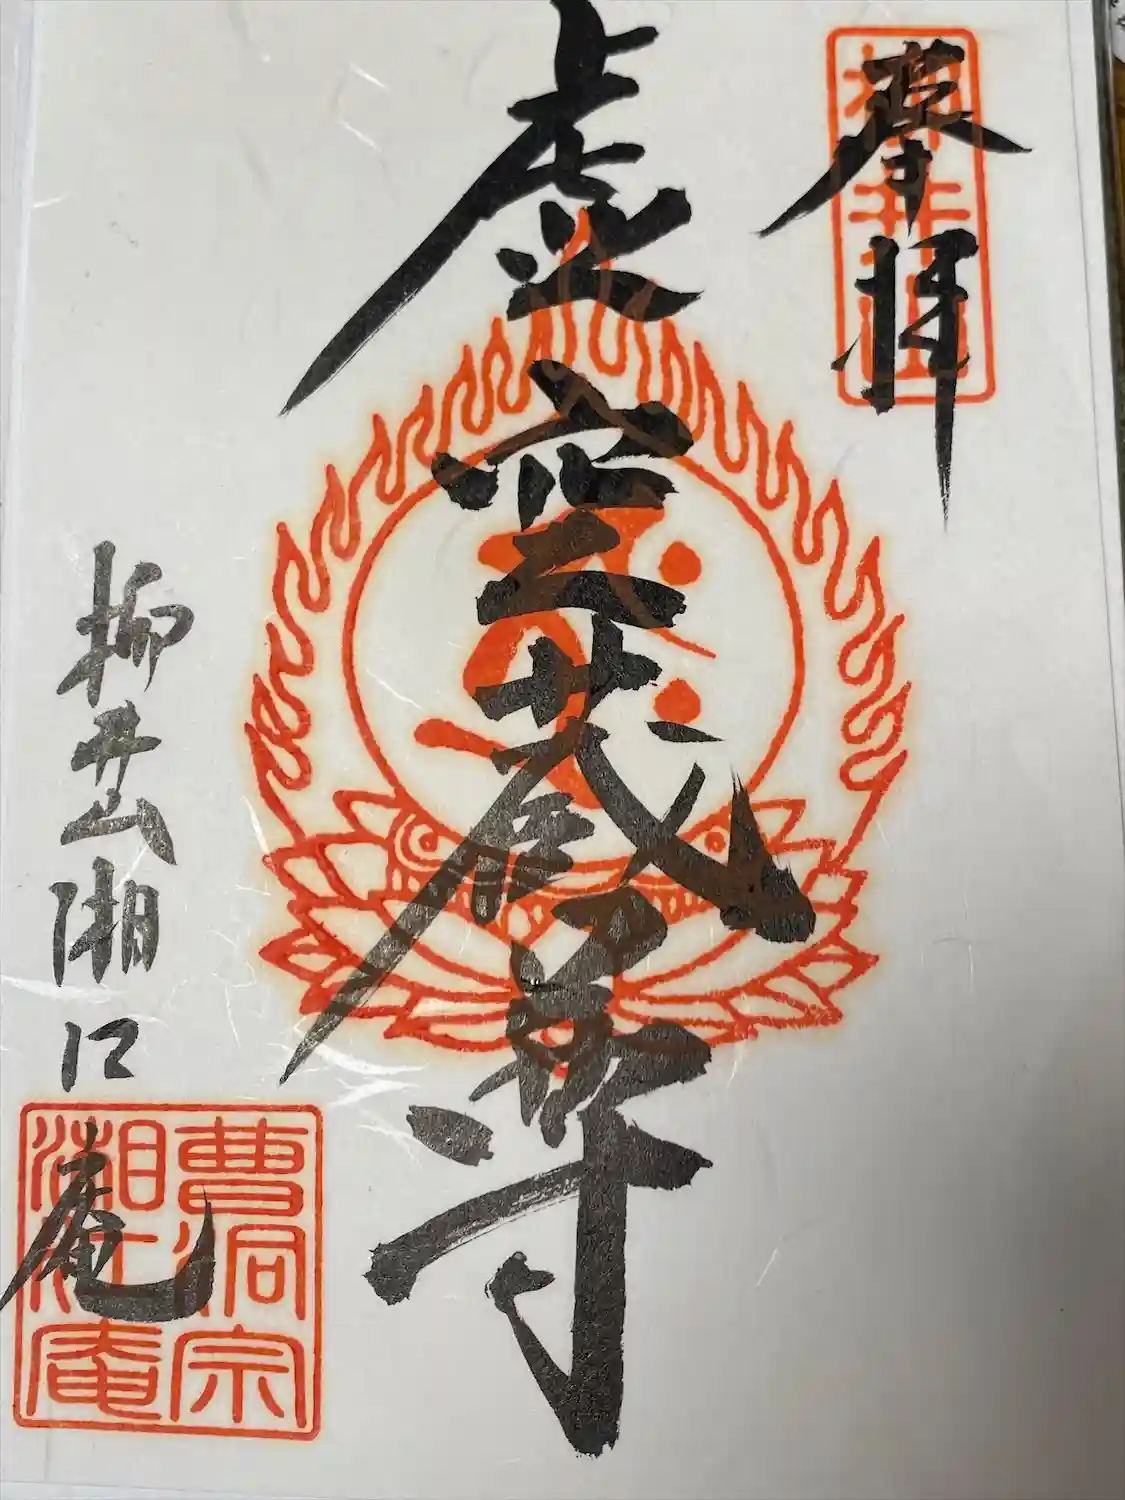 奉拝
虚空蔵尊
柳井山湘江庵
曹洞宗
湘江庵